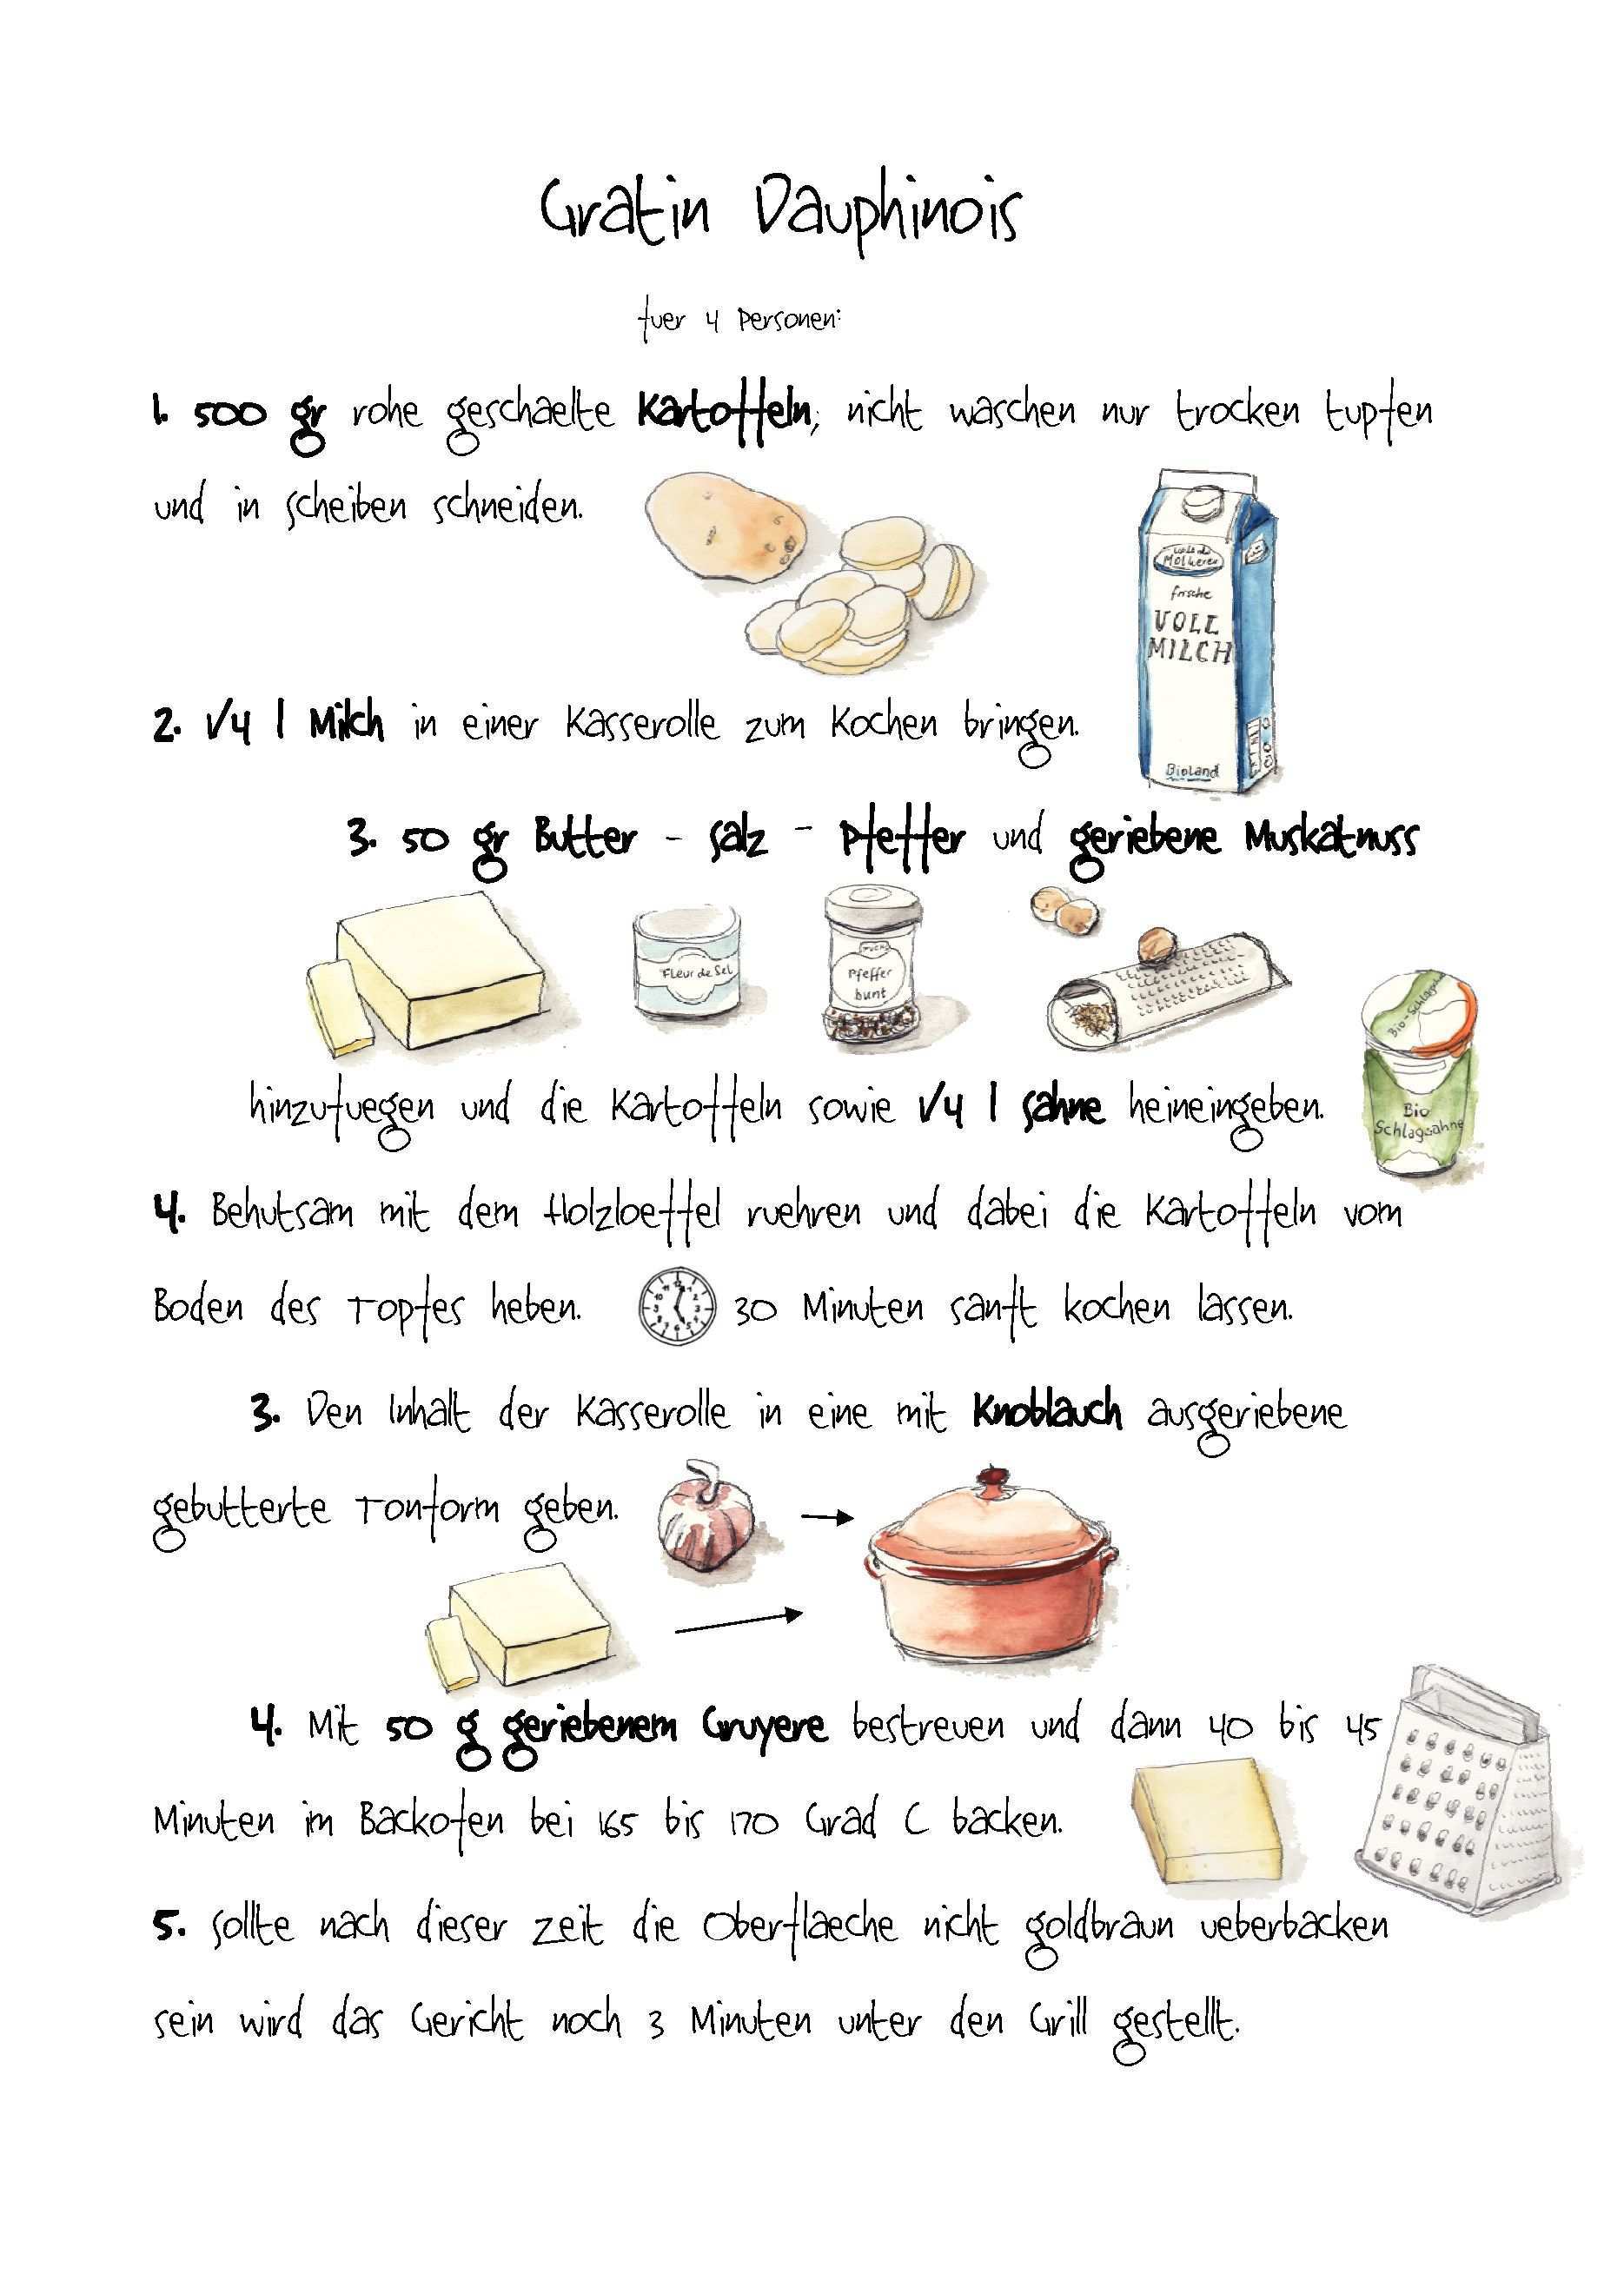 Gratin Dauphinois
fuer 4 Personen:
1. 500 gr rohe geschaelte Kartoffeln, nicht waschen nur trocken tupfen
und in Scheiben schneiden.
frische
VOLL
MILCH
Bioland
2. 1/4 l Milch in einer Kasserolle zum Kochen bringen.
3. 50 gr Butter - Salz - Pfeffer und geriebene Muskatnuss
Fleur de Sel
Pfeffer
bunt
hinzufuegen und die Kartoffeln sowie 1/4 l Sahne heineingeben.
Bio
Schlagsahne
4. Behutsam mit dem Holzloeffel ruehren und dabei die Kartoffeln vom
Boden des Topfes heben. 30 Minuten sanft kochen lassen.
3. Den Inhalt der Kasserolle in eine mit Knoblauch ausgeriebene
gebutterte Tonform geben.
4. Mit 50 g geriebenem Gruyere bestreuen und dann 40 bis 45
Minuten im Backofen bei 165 bis 170 Grad C backen.
5. Sollte nach dieser Zeit die Oberflaeche nicht goldbraun ueberbacken
sein wird das Gericht noch 3 Minuten unter den Grill gestellt.